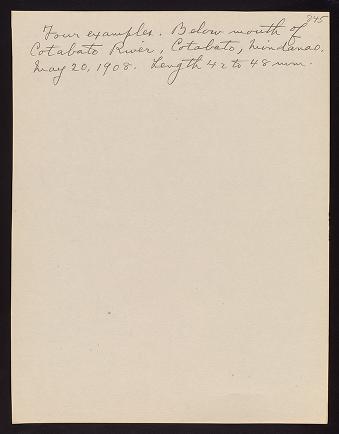 845
Four examples. Below mouth of
Cotabato River, Cotabato, Mindanao.
May 20, 1908. Length 42 to 48 mm.